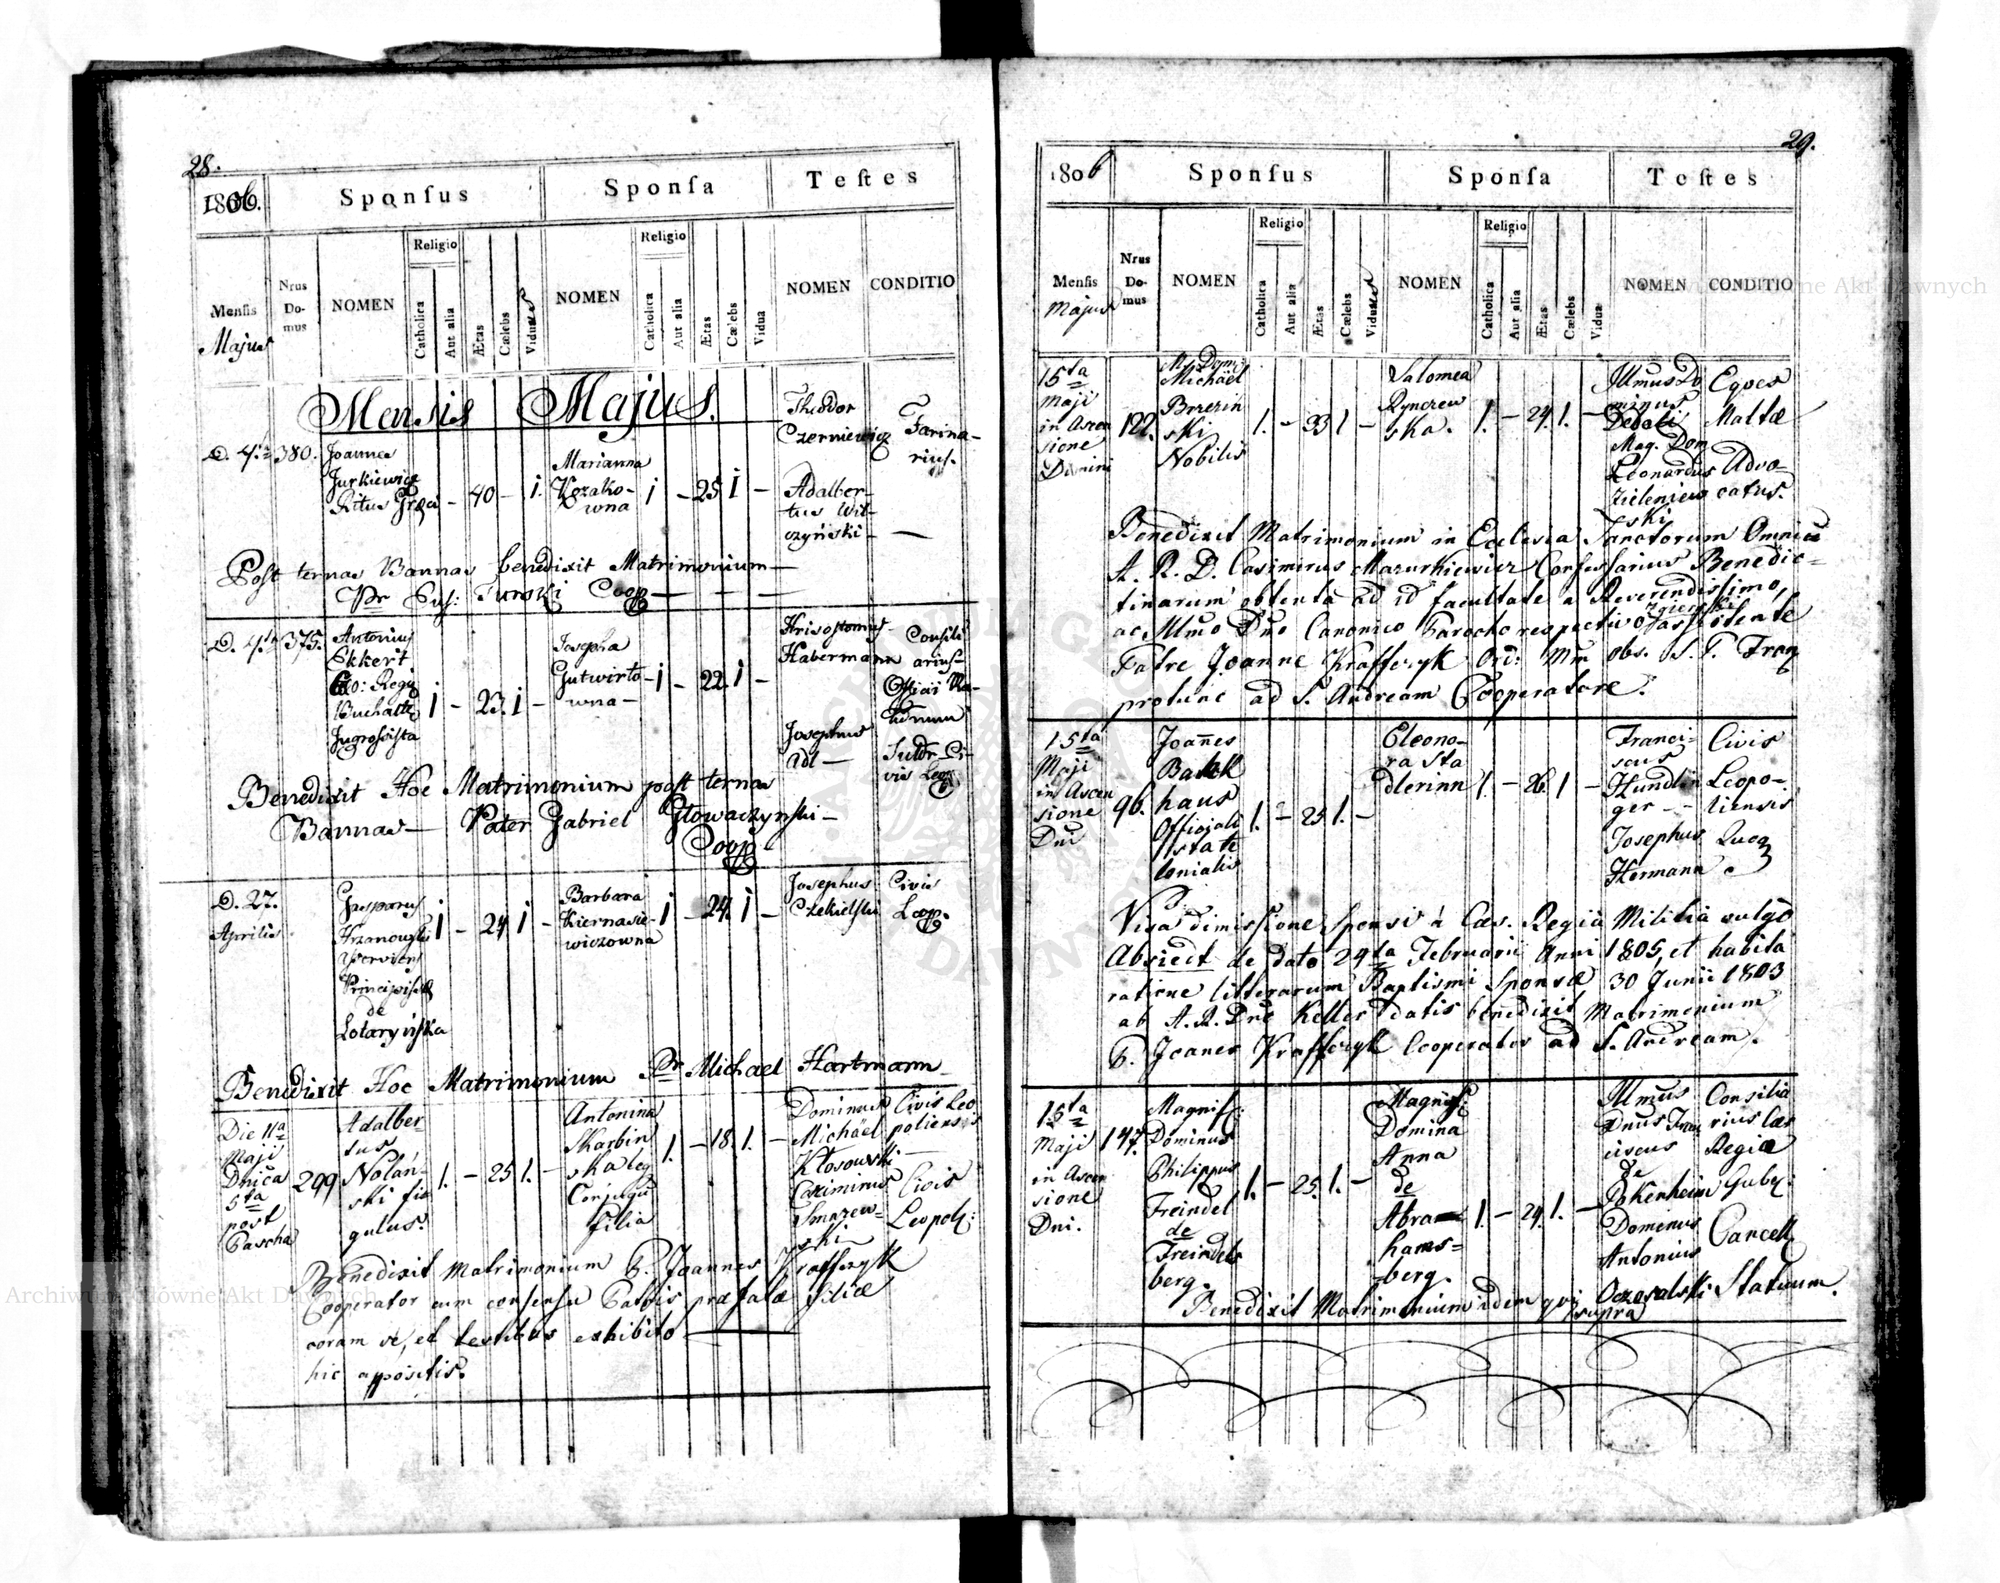 28.
1806.
Sponsus
Sponsa
Testes
Mensis
Majus
Nrus Domus
NOMEN
Religio
Catholica
Aut alia
Ætas
Cælebs
Viduus
NOMEN
Religio
Catholica
Aut alia
Ætas
Cælebs
Vidua
NOMEN
CONDITIO
Mensis Majus.
D. 4ta 380.
Joannes
Jurkiewicz
Ritus Græci
- 40 - 1.
Marianna
Kozako-
wna
1 - 25 1 -
Theodor
Czerniewicz
Farina-
rius.
Adalber-
tus Wil-
czyński -
Post ternas Bannas benedixit Matrimonium
Coop
D. 4ta 375.
Antonius
Ekkert
Buchalte
Ingrossista
1 - 23. 1 -
Josepha
Gutwirto-
wna -
1 - 22. 1 -
Krisostomus
Habermann
Consili
arius
Officii
Josephus
Adl -
Civis Leop
Benedixit Hoc Matrimonium post ternas
Bannas - Pater Gabriel Głowaczynski -
Coop
D. 27.
Aprilis
Gasparus
Krzanowski
Serviens
Principissæ
de
Lotaryńska
1 - 24 1 -
Barbara
Kiernasie-
wiczowna
1 - 24. 1 -
Josephus
Czekielski
Civis
Leop.
Benedixit Hoc Matrimonium Pr Michael Hartmann
Die 11a
Maji
Dnica
5ta
post
Pascha
299
Adalber-
tus
Nolań-
ski fi
gulus.
1. - 25 1. -
Antonina
Skarbin
ska leg
Conjugu
filia
1. - 18. 1. -
Dominus
Michäel
Kłosowski
Casimirus
Smazew-
ski
Civis Leo
poliensis
Civis
Leopol:
Benedixit Matrimonium P. Joannes Krafferyk
Cooperator cum consensu Patris præfatæ filiæ
coram se, et testibus exhibito
hic appositis.
29.
1806
Sponsus
Sponsa
Testes
Mensis
Majus
Nrus Domus
NOMEN
Religio
Catholica
Aut alia
Ætas
Cælebs
Viduus
NOMEN
Religio
Catholica
Aut alia
Ætas
Cælebs
Vidua
NOMEN
CONDITIO
15ta
Maji
in Ascen
sione
Domini
122.
M. Dom:
Michäel
Brzezin
ski
Nobilis
1. - 33 1 -
Salomea
Rynczew
ska.
1. - 24. 1. -
Illmus Do
minus
Deboli
Mag. Dom
Leonardus
Zieleniew
ski
Eques
Maltæ
Advo-
catus.
Benedixit Matrimonium in Ecclesia Sanctorum Omniu
A. R. D. Casimirus Mazurkiewicz Confessarius Benedic-
tinarum obtenta ad id facultate a Reverendissimo,
ac Illmo Dno Canonico Parocho respectivo Zgierski assistente
Patre Joanne Krafferyk Ord: Mm obs. S. P. Franc
protunc ad S. Andream Cooperatore.
15ta
Maji
in Ascen
sione
Dni
96.
Joañes
Bakk
haus
Officiali
sta te
lonialis
1. - 25 1. -
Eleono-
ra Sta
dlerinn
1. - 26. 1 -
Franci-
scus
Hundlin
ger - -
Josephus
Hermann
Civis
Leopo-
liensis
Quoq
Visa dimissione Sponsi à Cæs. Regiâ Militiâ vulgo
Absiedt de dato 24ta Februarii Anni 1805, et habita
ratione litterarum Baptismi Sponsæ 30 Junii 1803
ab A. R. Dno Keller datis benedixit Matrimonium
P. Joanes Krafferyk Cooperator ad S. Andream.
15ta
Maji
in Ascen
sione
Dni.
147.
Magnif:
Dominus
Philippus
Freindel
de
Freindels
berg.
1. - 25. 1. -
Magnif:
Domina
Anna
de
Abra
hams=
berg.
1. - 24. 1. -
Illmus
Dnus Fran
ciscus
de
Dominus
Antonius
Consilia
rius Cæs
Regiæ
Gub:
Cancell
Statuum.
Benedixit Matrimonium idem qui supra
Archiwum Główne Akt Dawnych